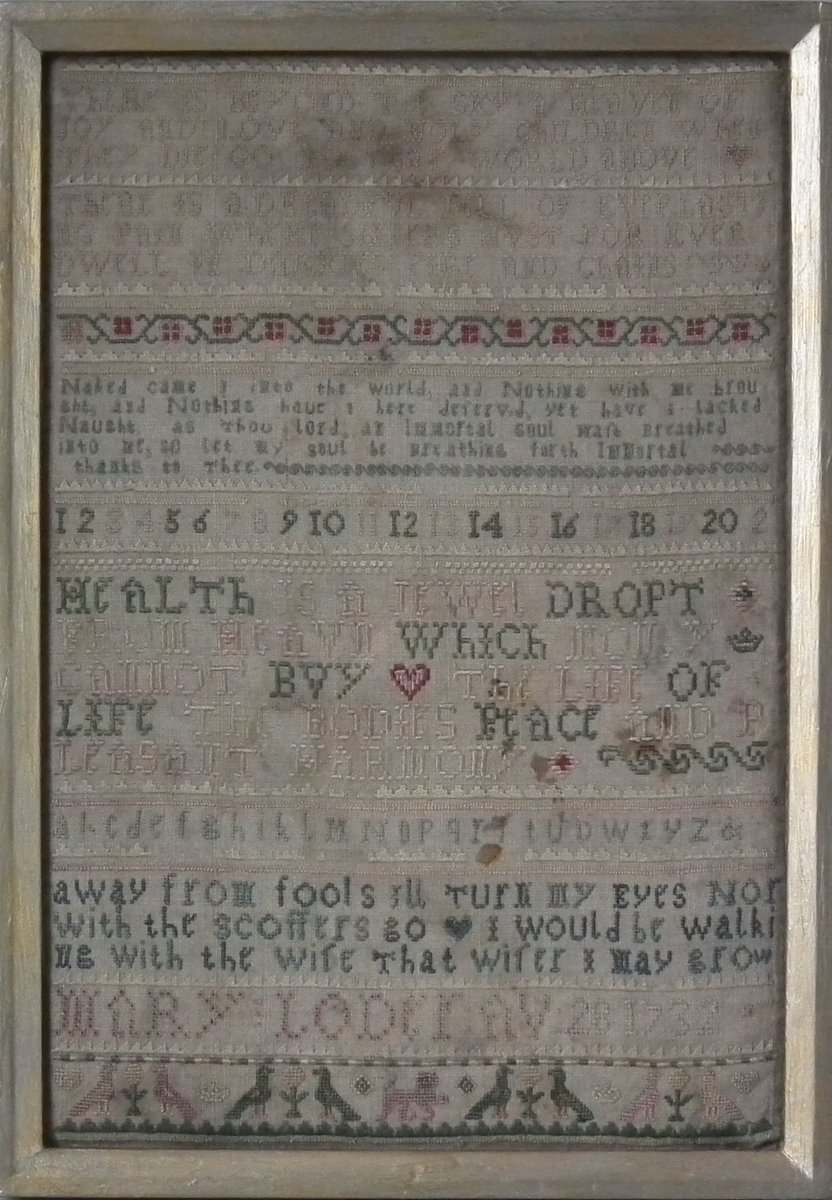 THERE IS BEYOND THE SKY A HEAVEN OF
JOY AND LOVE AND HOLY CHILDREN WHEN
THEY DIE GO TO THAT WORLD ABOVE
THERE IS A DREADFUL HELL OF EVERLASTI
NG PAIN WHERE SINNERS MUST FOR EVER
DWELL IN DARKNES FIRE AND CHAINS
Naked came I into the world, and Nothing with me brou
ght, and Nothing have I here deserv,d, yet have I lacked
Naught, as Thou lord, an Immortal soul hath breathed
into me, so let my soul be breathing forth Immortal
thanks to Thee
1 2 3 4 5 6 7 8 9 10 11 12 13 14 15 16 17 18 19 20 2
HeALTh IS A JeWel DROPT
FROM HeAVN WhICh MONY
CANNOT BVY The LIFE OF
LIFe THE BODIES PeACe AND P
LeASANT HARMONY
a b c d e f g h i k l M N o P q r ſ t U D W x y Z &
away from fools ill Turn my Eyes Nor
with the scoffers go I would be walki
ng with the wiſe That wiſer I may grow
MARY LODer AV 28 1732